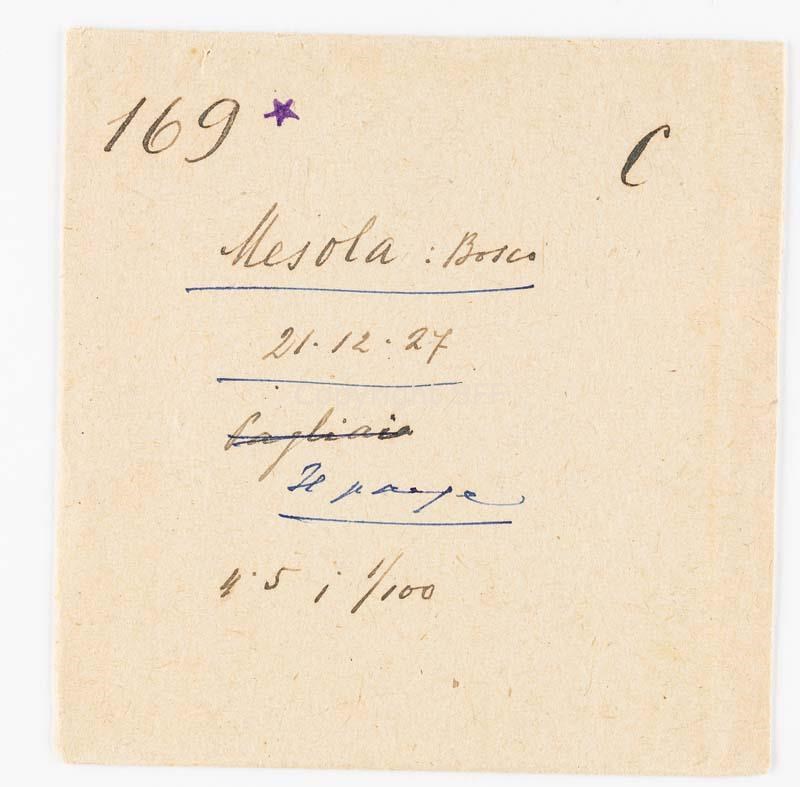 169 * C
Mesola : Bosco
21.12.27
Pagliaio
Il paese
4.5 ; 1/100